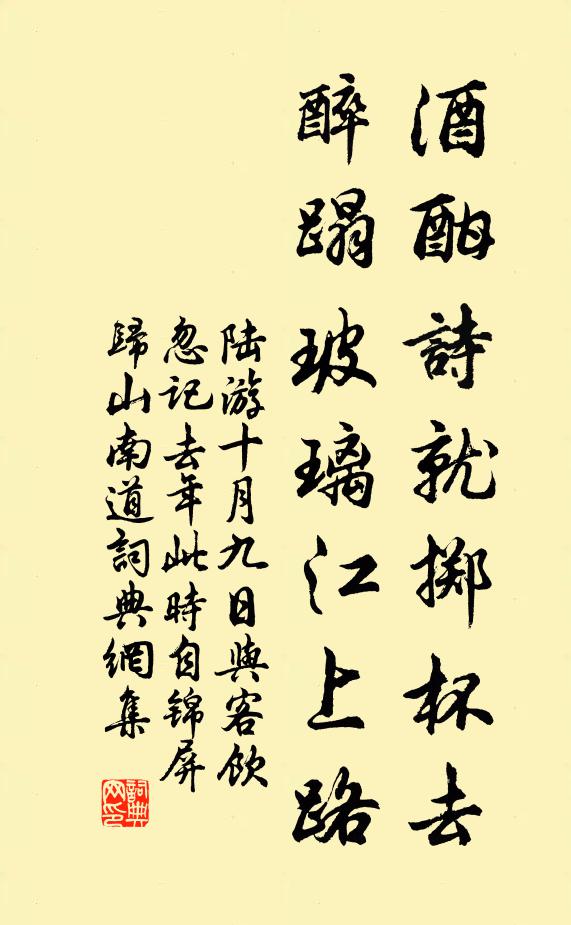 酒酣詩就擲杯去
醉蹋玻璃江上路
陆游十月九日與客飲
忽记去年此時自锦屏
歸山南道詞典網集
詞典网印